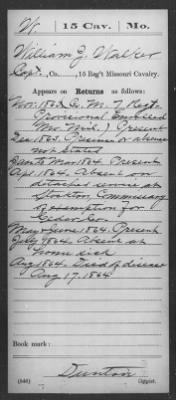 W | 15 Cav. | Mo.
William G. Walker
Capt., Co. , 15 Reg't Missouri Cavalry.
Appears on Returns as follows:
Nov. 1863. Co. M. 7 Regt
Provisional Enrolled
Mo. Mil.) Present
Dec 1863. Presence or absence
not stated
Jan to Mar 1864. Present
Apr 1864. Absent on
detached service at
Stockton, Commissary
of exemption for
Cedar Co.
May & June 1864. Present
July 1864. Absent at
home sick
Aug 1864. Died of disease
Aug 17. 1864
Book mark:
Dunton
(546) Copyist.